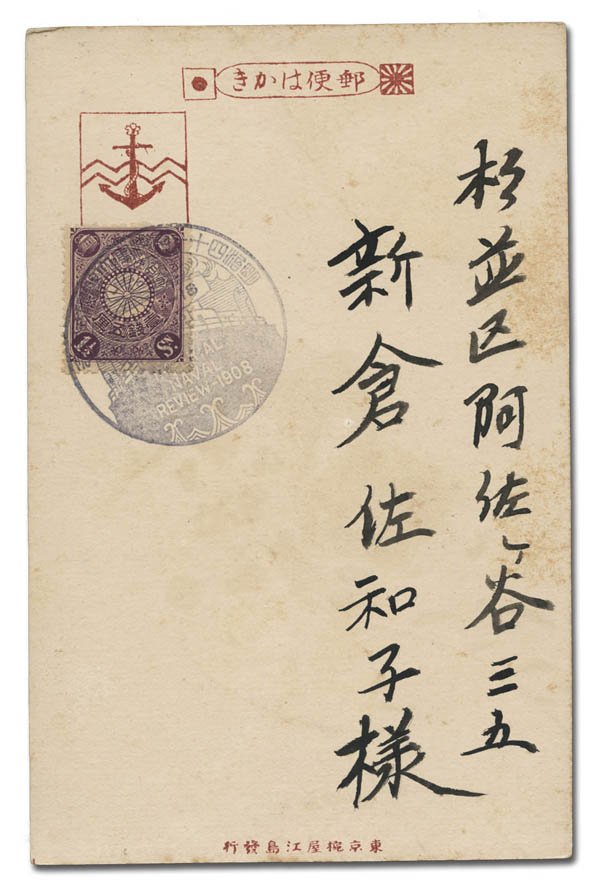 郵便はかき
杉並区阿佐ヶ谷三五
新倉佐和子様
1½ Sn.
NAVAL
REVIEW-1908
東京梔屋江島發行